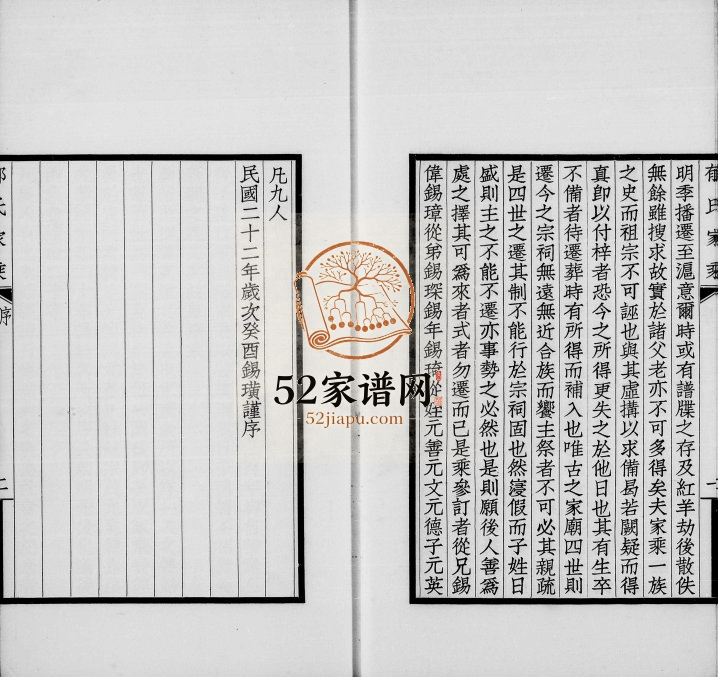 郁氏家乘
一
明季播遷至滬意爾時或有譜牒之存及紅羊劫後散佚
無餘雖搜求故實於諸父老亦不可多得矣夫家乘一族
之史而祖宗不可誣也與其虛搆以求備曷若闕疑而得
真卽以付梓者恐今之所得更失之於他日也其有生卒
不備者待遷葬時有所得而補入也唯古之家廟四世則
遷今之宗祠無遠無近合族而饗主祭者不可必其親疏
是四世之遷其制不能行於宗祠固也然寖假而子姓日
盛則主之不能不遷亦事勢之必然也是則願後人善爲
處之擇其可爲來者式者勿遷而已是乘參訂者從兄錫
偉錫璋從弟錫琛錫年錫琦從姪元善元文元德子元英
凡九人
民國二十二年歲次癸酉錫璜謹序
氏家乘
序
二
52家谱网
52jiapu.com